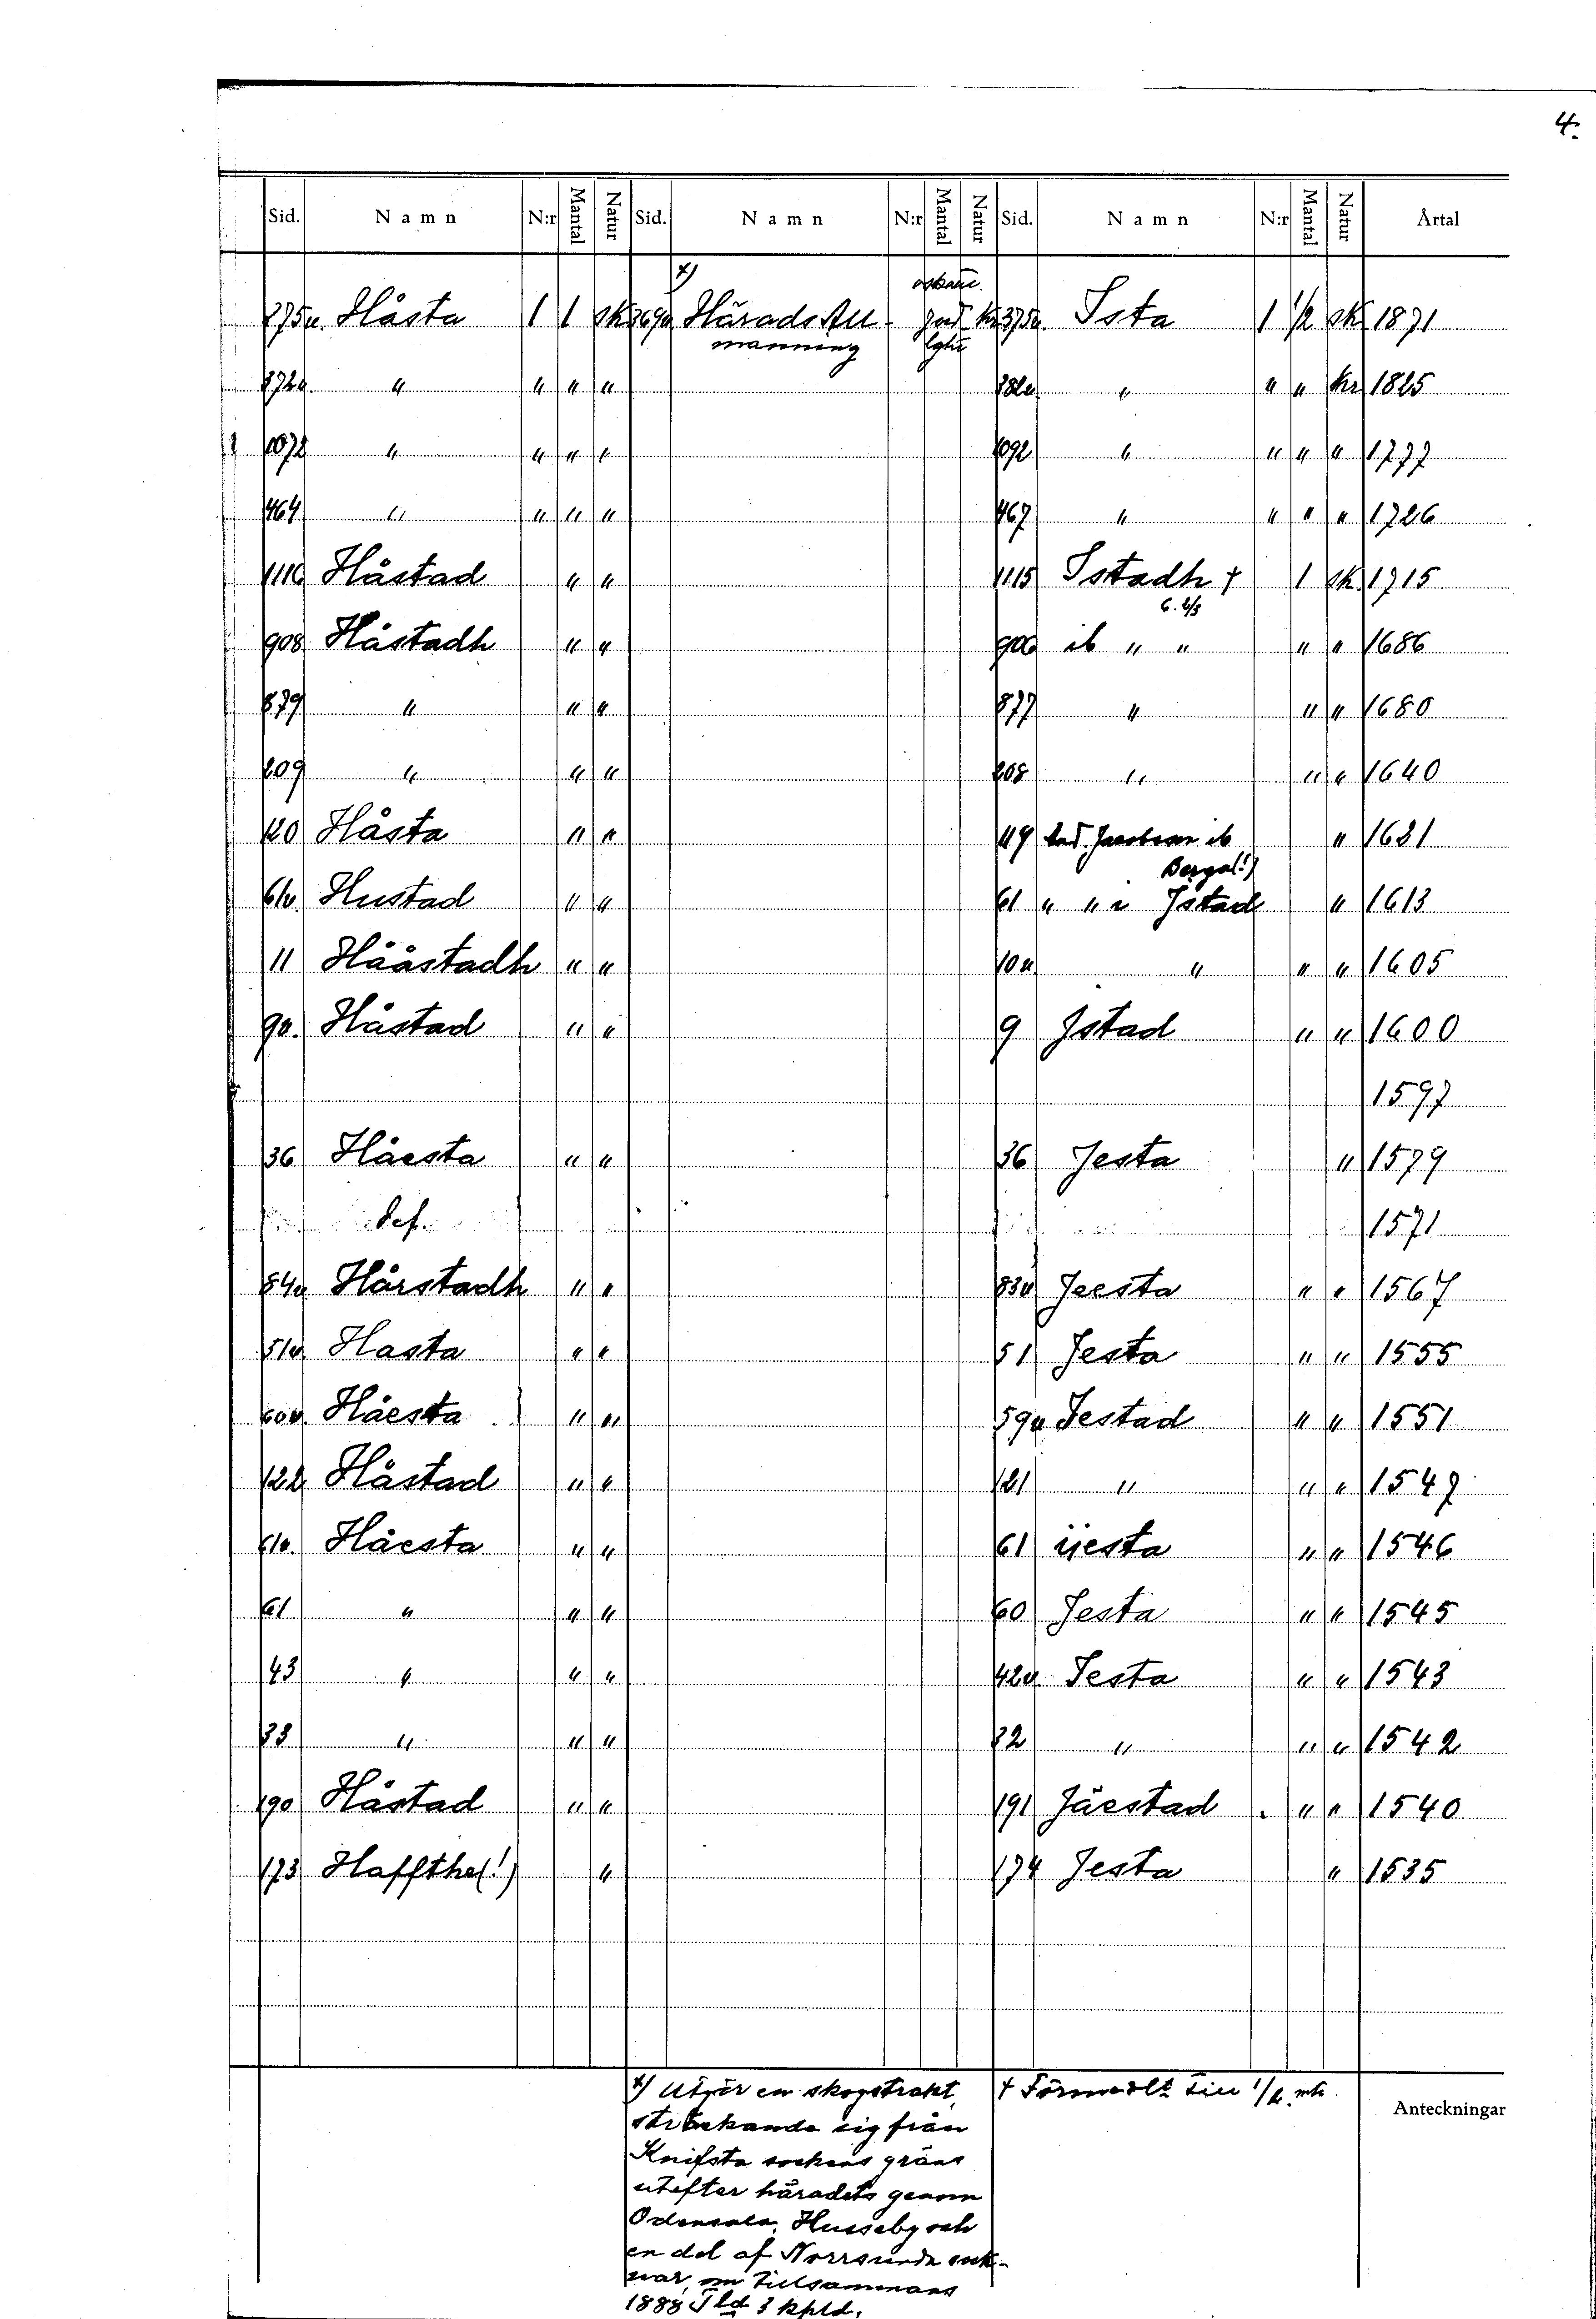 4.
Sid. Namn N:r Mantal Natur Sid. Namn N:r Mantal Natur Sid. Namn N:r Mantal Natur Årtal
375v. Håsta 1 1 sk 369v x) Härads All- oskatt. jord kr 375v Ista 1 1/2 sk 1871
manning lght
372v " " " " 382v " " " kr 1825
1072 " " " " 1092 " " " " 1777
464 " " " " 467 " " " " 1726
1116 Håstad " " 1115 Istadh † 1 sk. 1715
6. 2/3
908 Håstadh " " 906 ib " " " " 1686
879 " " " 877 " " " 1680
209 " " " 208 " " " 1640
120 Håsta " " 119 Lad. Jacobson ib " 1621
Bergal!)
61v. Hustad " " 61 " " i Jstad " 1613
11 Hååstadh " " 10v " " " 1605
9v. Håstad " " 9 Jstad " " 1600
1597
36 Håesta " " 36 Jesta " 1579
def. 1571
84v Hårstadh " " 83v Jeesta " " 1567
51v. Hasta " " 51 Jesta " " 1555
60v Håesta " " 59v Jestad " " 1551
122 Håstad " " 121 " " " 1547
61v. Håesta " " 61 ijesta " " 1546
61 " " " 60 Jesta " " 1545
43 " " " 42v Jesta " " 1543
33 " " " 32 " " " 1542
190 Håstad " " 191 Jäestad " " 1540
173 Haffthe(!) " 174 Jesta " 1535
x) Utgör en skogstrakt, † Förmedlt till 1/2 mtl. Anteckningar
sträckande sig från
Knifsta sockens gräns
utefter häradets genom
Odensala, Husseby och
en del af Norrsunda sock-
nar, om tillsammans
1888 Tld 3 kpld.